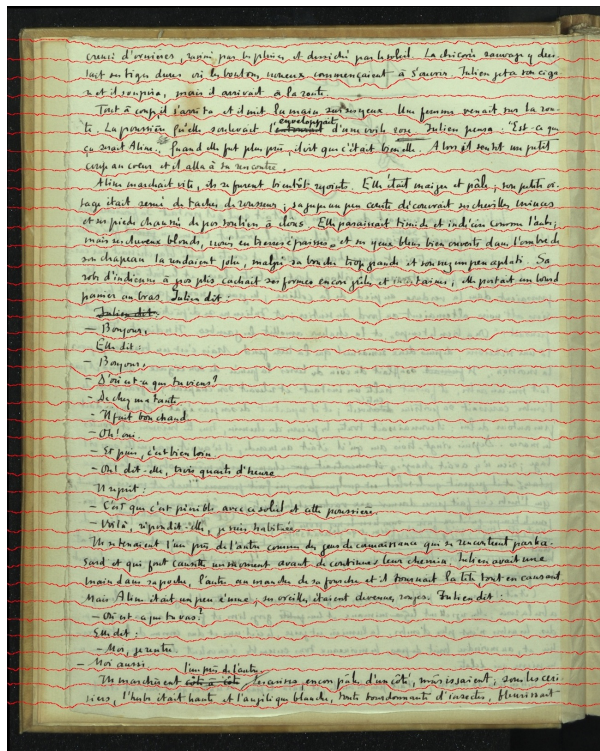 creusé d'ornières, raviné par les pluies et desséché par le soleil. La chicorée sauvage y dres-
sait ses tiges dures où les boutons noueux commençaient à s'ouvrir. Julien jeta son ciga-
re et il soupira, mais il arrivait à la route.
Tout à coup il s'arrêta et il mit la main sur ses yeux. Une femme venait sur la rou-
te. La poussière qu'elle soulevait l'enveloppait d'une voile rose. Julien pensa : "Est-ce que
ça serait Aline." Quand elle fut plus près, il vit que c'était bien elle. Alors il sentit un petit
coup au cœur et il alla à sa rencontre.
Aline marchait vite, ils se furent bientôt rejoints. Elle était maigre et pâle, son petit vi-
sage était semé de taches de rousseur ; sa jupe un peu courte découvrait ses chevilles minces
et ses pieds chaussés de gros souliers à clous. Elle paraissait timide et indécise comme l'aube ;
mais ses cheveux blonds, noués en tresses épaisses, et ses yeux bleus bien ouverts dans l'ombre de
son chapeau la rendaient jolie, malgré sa bouche trop grande et son nez un peu aplati. Sa
robe d'indienne à gros plis cachait ses formes encore grêles et incertaines ; elle portait un
panier au bras. Julien dit :
Julien dit :
— Bonjour.
Elle dit :
— Bonjour.
— D'où est-ce que tu viens ?
— De chez ma tante.
— Il fait bon chaud.
— Oh ! oui.
— Et puis, c'est bien loin
— Oh ! dit-elle, trois quarts d'heure
Il reprit :
— C'est que c'est pénible avec ce soleil et cette poussière.
— Voilà, répondit-elle, je suis habituée.
Ils se tenaient l'un près de l'autre comme des gens de connaissance qui se rencontrent par ha-
sard et qui font causette un moment avant de continuer leur chemin. Julien avait une
main dans sa poche, l'autre au manche de sa fourche et il tournait la tête tout en causant
Mais Aline était un peu gênée, ses oreilles étaient devenues rouges. Julien dit :
— Où est-ce que tu vas ?
Elle dit :
— Moi, je rentre.
— Moi aussi.
l'un près de l'autre
Ils marchèrent côte à côte. Les cerises, encore pâles d'un côté, mûrissaient ; sous les ceri-
siers, l'herbe était haute et l'angélique blanche, toute bourdonnante d'insectes, fleurissait